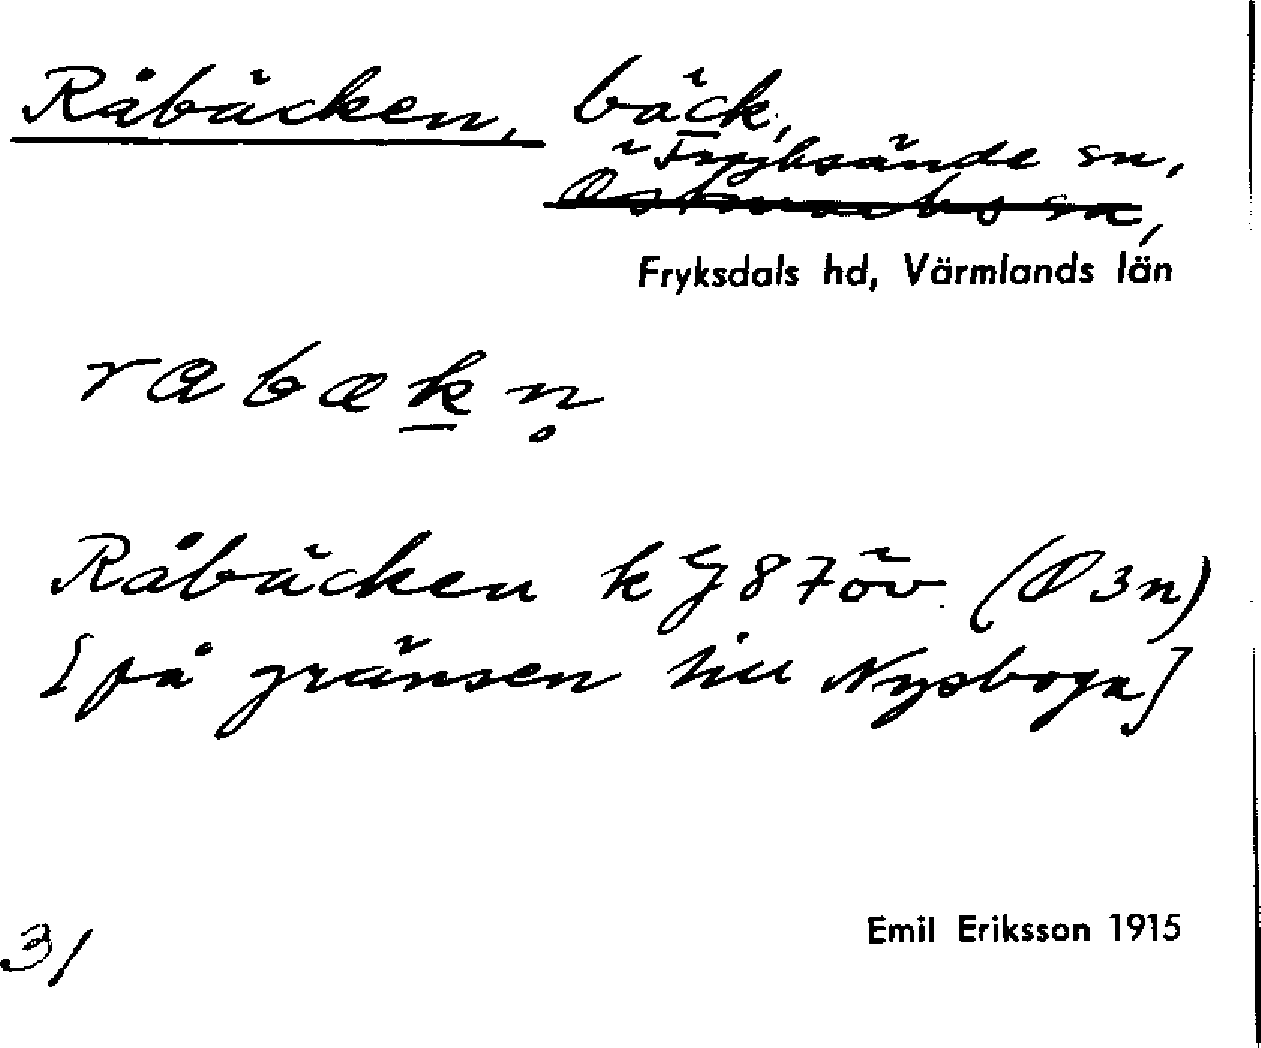 Råbäcken, bäck,
i Fryksände sn,
Östmarks sn,
Fryksdals hd, Värmlands län
rabæk n̥
Råbäcken k G 87 öv. (Ö 3n)
[på gränsen till Nysboga]
31
Emil Eriksson 1915